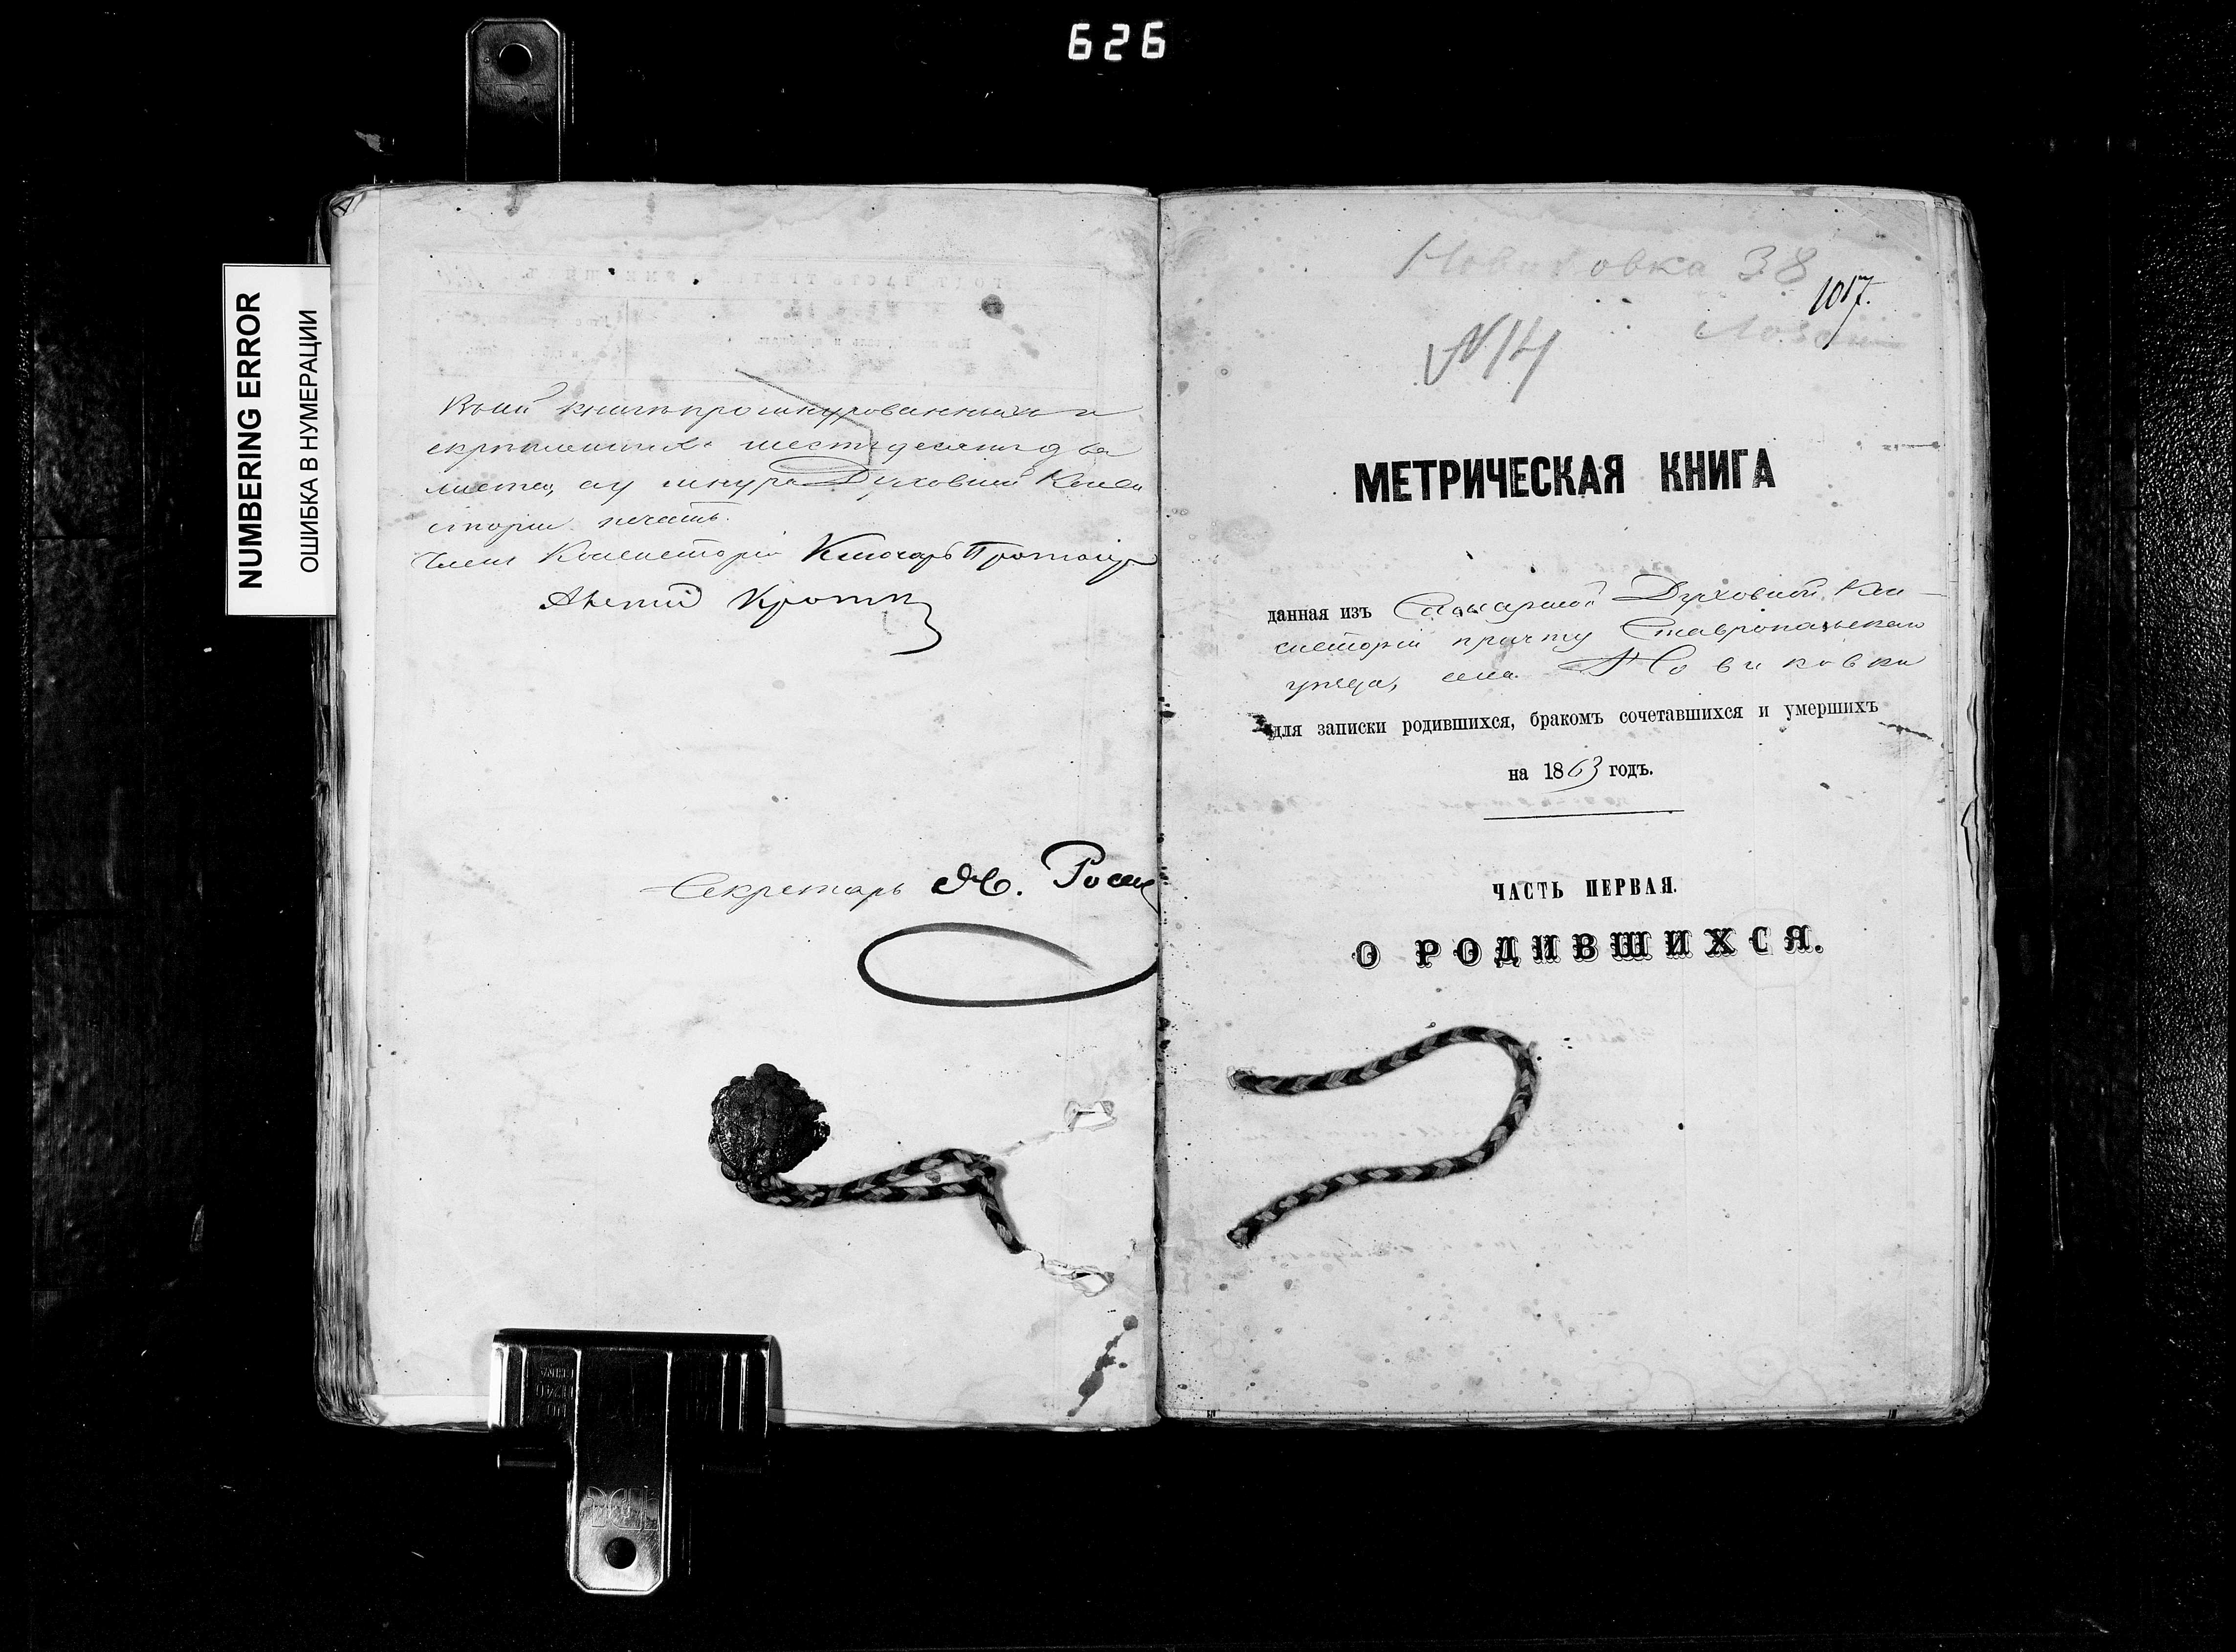 626
NUMBERING ERROR
ОШИБКА В НУМЕРАЦИИ
В сей книге прошнурованных и
скрепленных шестьдесят два
листа, а у шнура Духовной Конси
стории печать.
Членъ Консисторіи Ключарь Протоіер
Секретарь
Новиковка 38
1017.
N 14
МЕТРИЧЕСКАЯ КНИГА
данная изъ Самарской Духовной Кон-
систоріи причту Ставропольскаго
уѣзда, села Новиковки
для записки родившихся, бракомъ сочетавшихся и умершихъ
на 1863 годъ.
ЧАСТЬ ПЕРВАЯ.
О РОДИВШИХСЯ.